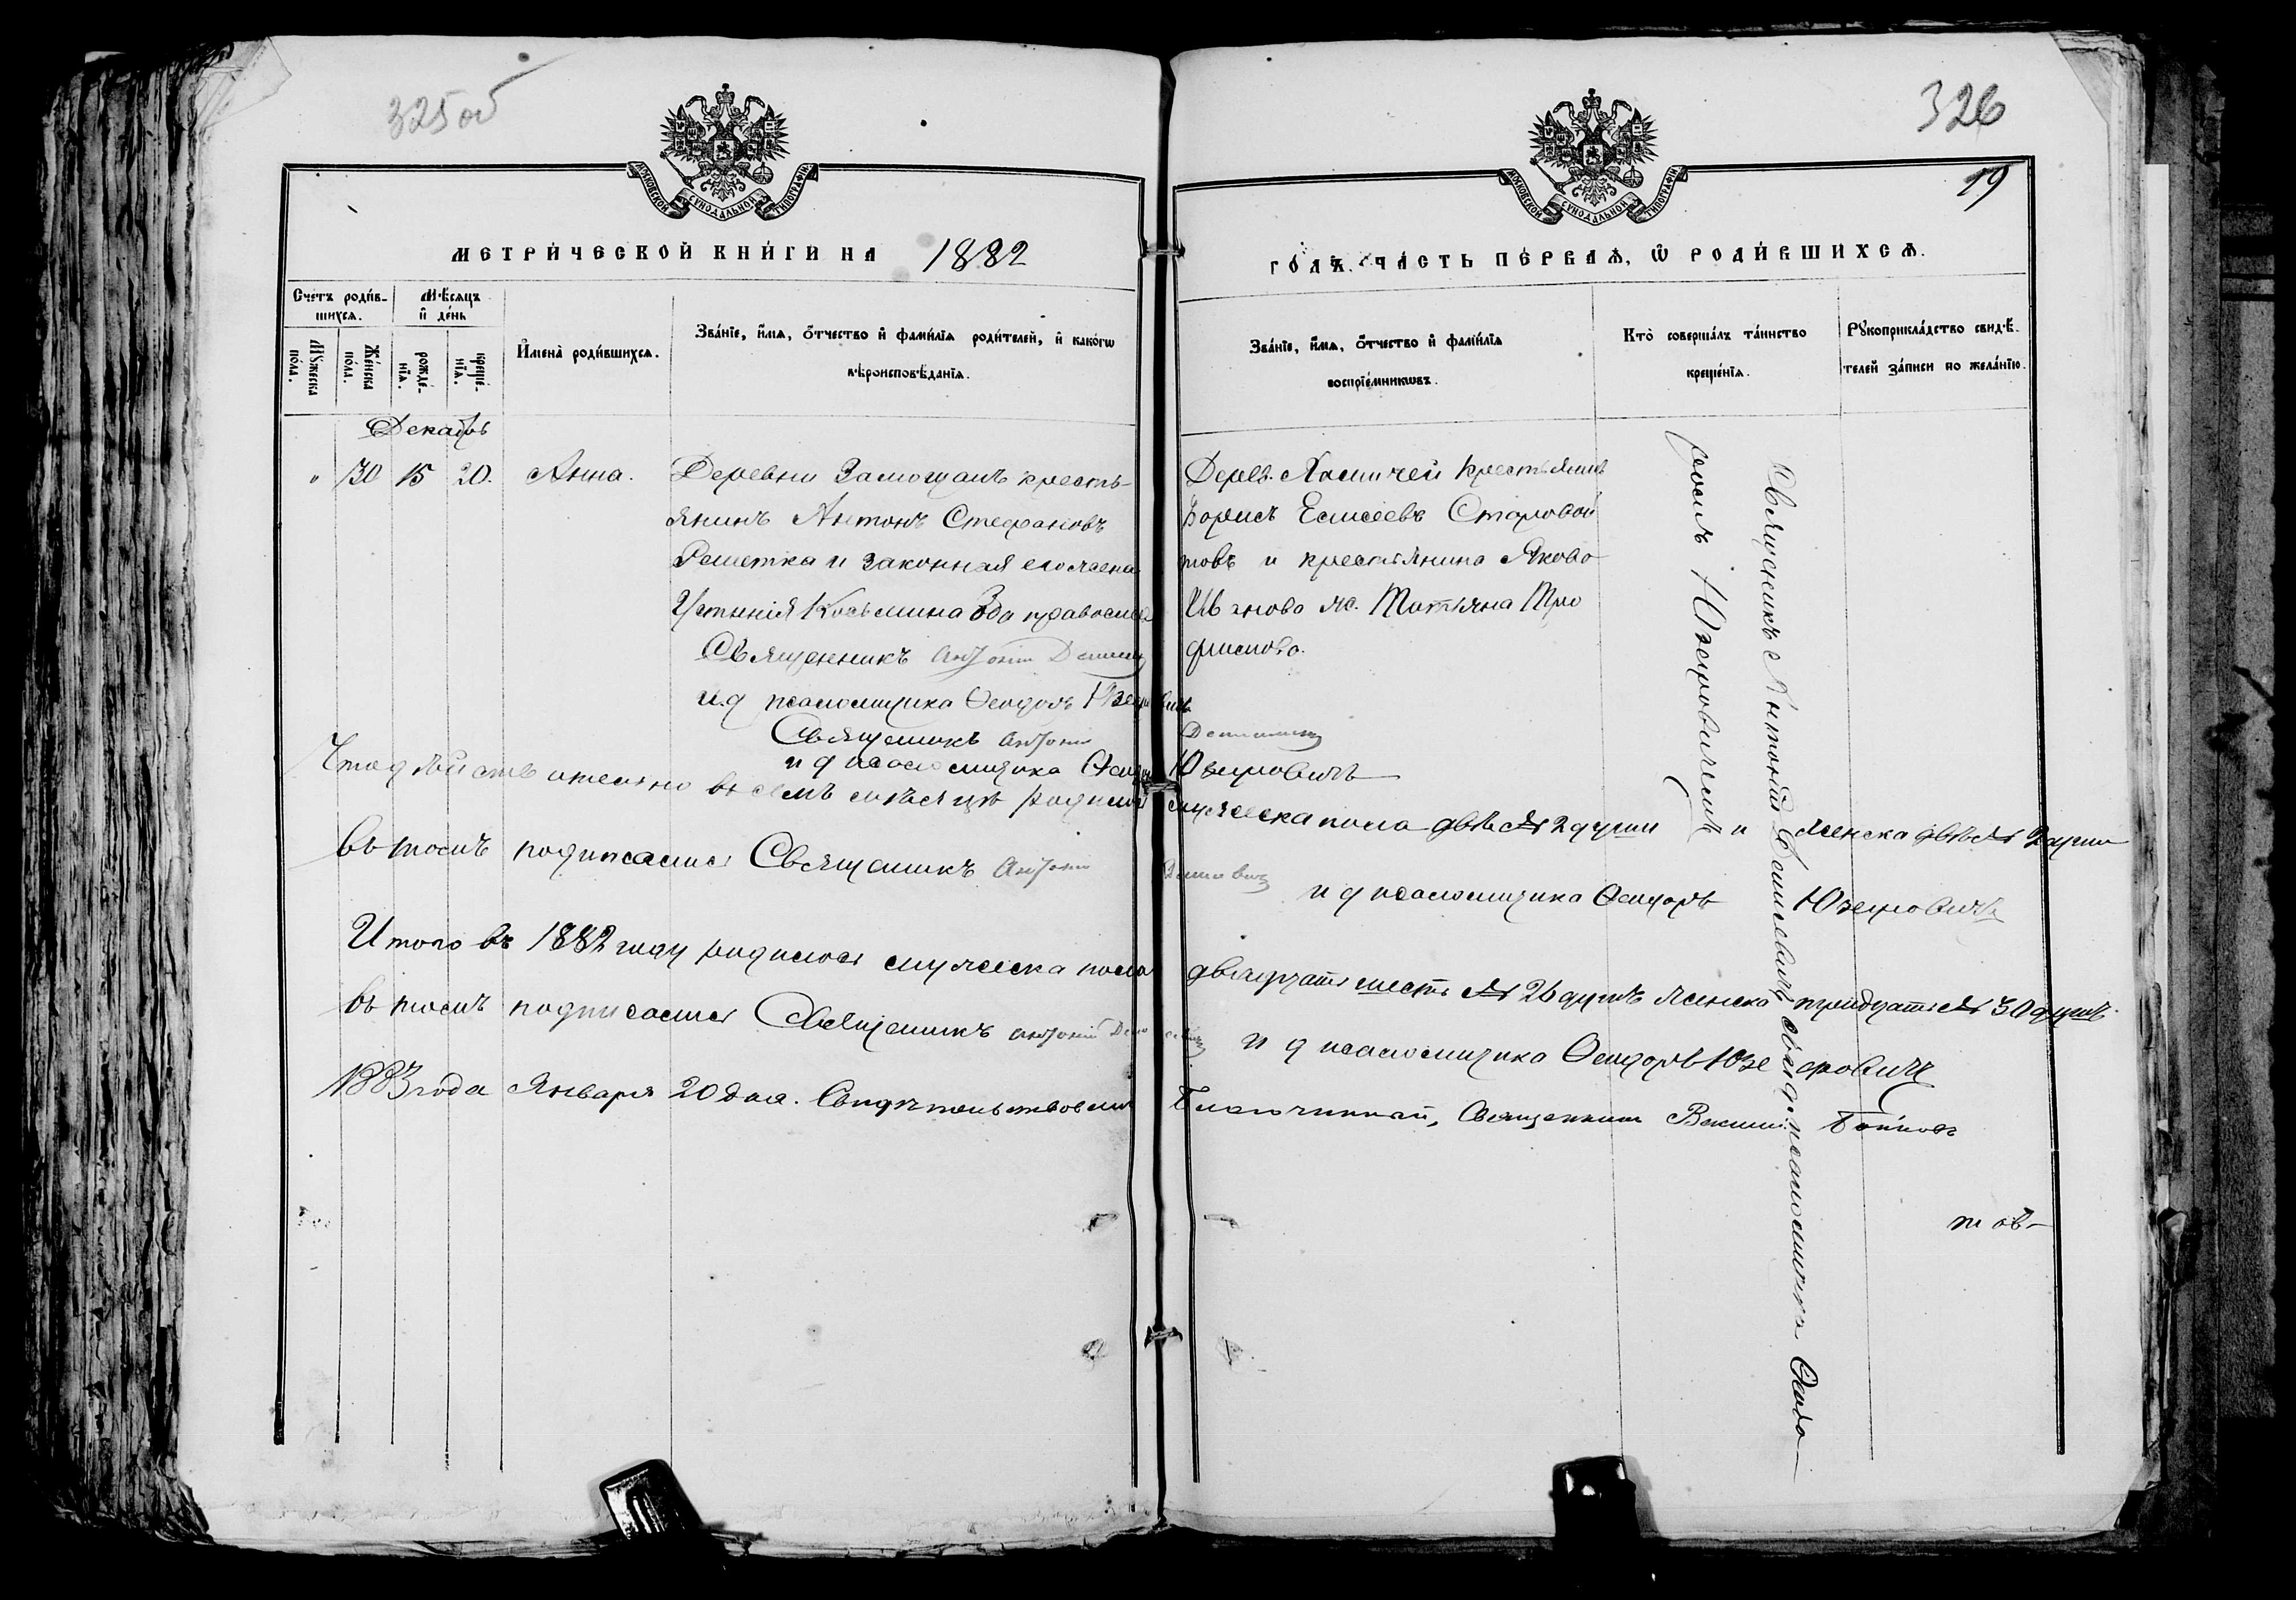 325 об
326
19
МОСКОВСКОЙ СѴНОДАЛЬНОЙ ТИПОГРАФІИ
МОСКОВСКОЙ СѴНОДАЛЬНОЙ ТИПОГРАФІИ
МЕТРИ́ЧЕСКОЙ КНИ́ГИ НА 1882
ГО́ДЪ. ЧА́СТЬ ПЕ́РВАѦ, Ѿ РОДИ́ВШИХСѦ.
Сче́тъ роди́в-
шихсѧ.
Мѣ́сяцъ
и де́нь
Мꙋ́жеска по́ла.
Же́нска по́ла.
рожде́-нїѧ.
креще́-нїѧ.
Имена̀ роди́вшихсѧ.
Зва́нїе, и́мѧ, ѻ́тчество и фами́лїѧ роди́телей, и како́гѡ
вѣроисповѣ́данїѧ.
Зва́нїе, и́мѧ, ѻ́тчество и фами́лїѧ
воспрїе́мникѡвъ.
Кто̀ соверша́лъ та́инство
креще́нїѧ.
Рꙋкоприкла́дство свидѣ́-
телей за́писи по жела́нїю.
Декабрь
" 30 15 20. Анна.
Деревни Замощанъ кресть-
янинъ Антонъ Стефановъ
Решетка и законная его жена
Устинія Козьмина Оба православ
Священникъ Антоній
и.д псаломщика Ѳеодоръ Юзефовичъ
Дерев. крестьянинъ
Борисъ Елисеевъ Старовой
товъ и крестьянина Якова
Иванова ж. Татьяна Тро
фимова.
Священникъ Антоній Демиановичъ и и.д псаломщика Ѳеодо-
ромъ Юзефовичемъ
Священникъ Антоній
и д псаломщика Ѳеодоръ Юзефовичъ
Что дѣйствительно въ семъ мѣсяцѣ родилось мужеска пола двѣ 2 души и женска двѣ 2 души
въ томъ подписались Священникъ Антоній
и д псаломщика Ѳеодоръ Юзефовичъ
Итого въ 1882 году родилось мужеска пола двадцать шесть 26 душъ женска тридцать 30 душъ
въ томъ подписались Священникъ Антоній
и д псаломщика Ѳеодоръ Юзефовичъ
1883 года Января 20 дня. Свидѣтельствовалъ Благочинный, Священникъ